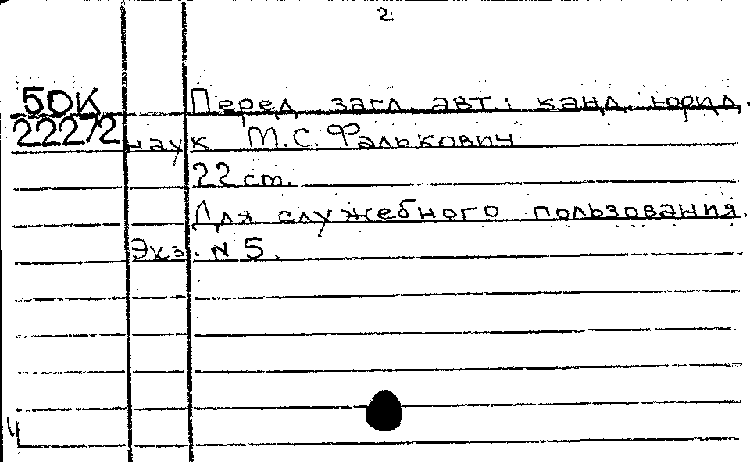 2
50К Перед загл. авт.: канд. юрид.
222/2 наук М.С. Фалькович
22 cm.
Для служебного пользования.
Экз. N 5.